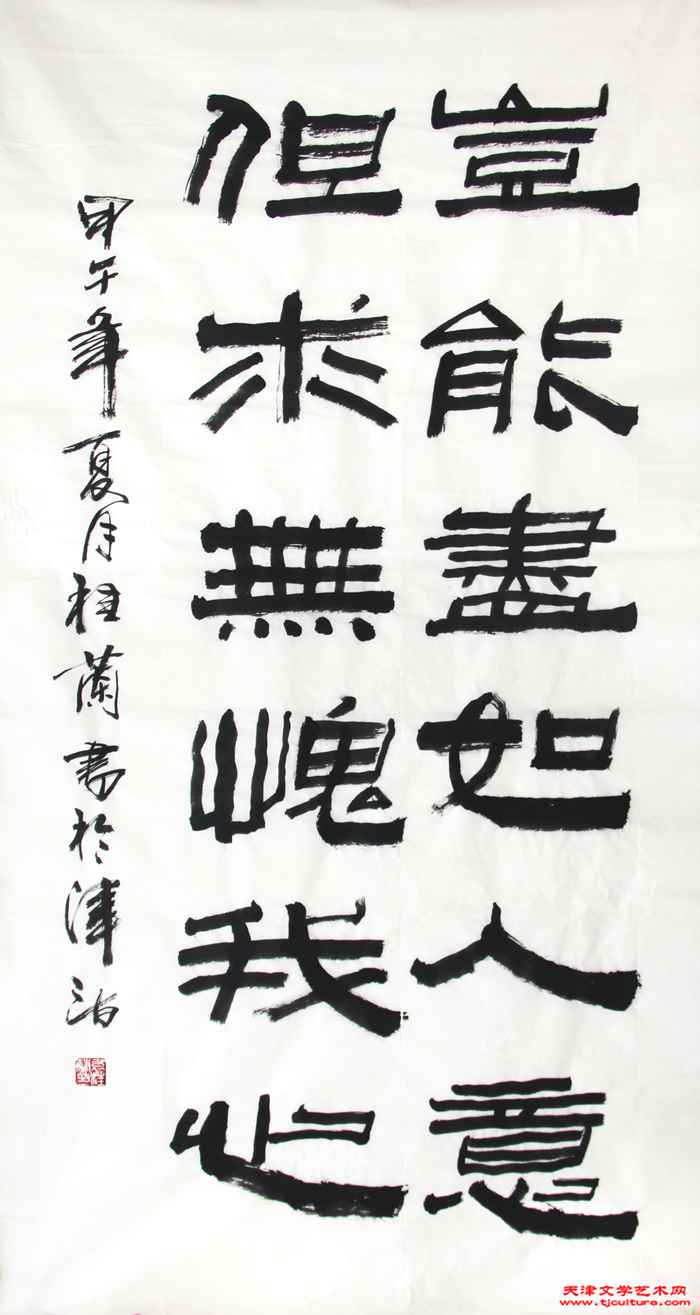 豈能盡如人意
但求無愧我心
甲午年夏月桂蘭書於津沽
天津文学艺术网
www.tjculture.com